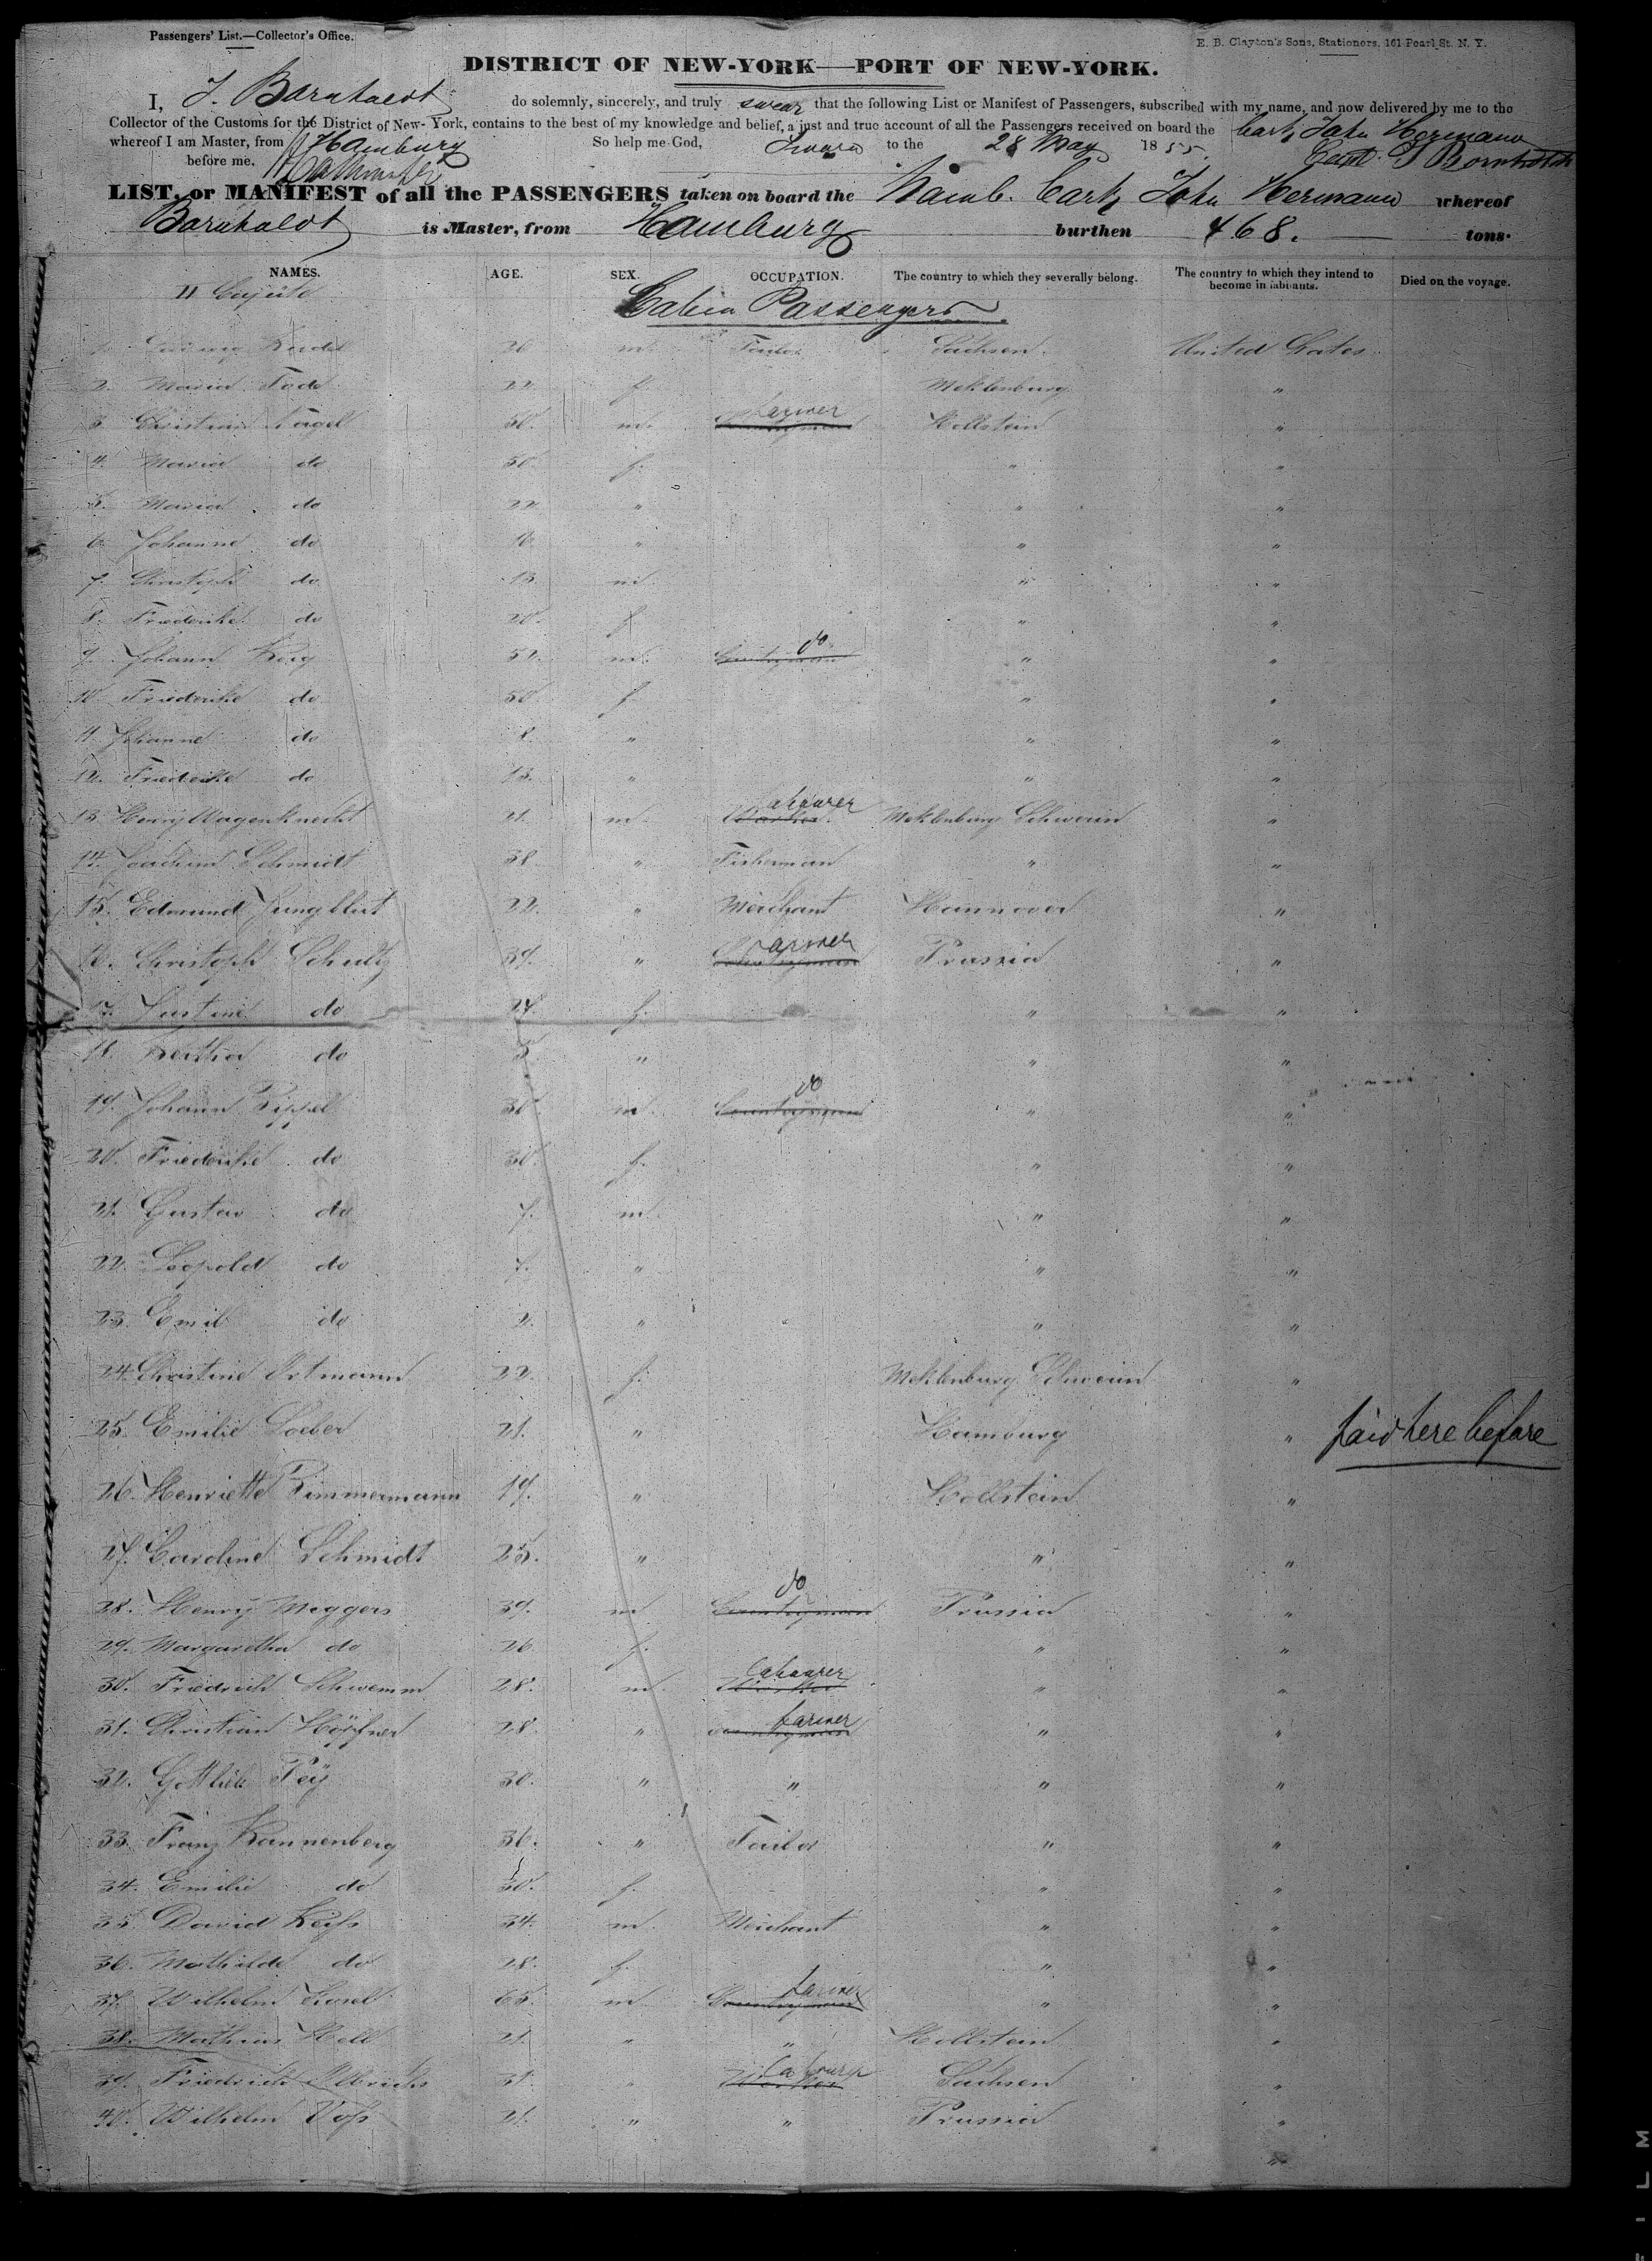 Passengers' List.—Collector's Office.
E. B. Clayton's Sons, Stationers, 161 Pearl St. N. Y.
DISTRICT OF NEW-YORK—PORT OF NEW-YORK.
I, J. Barnholdt do solemnly, sincerely, and truly swear that the following List or Manifest of Passengers, subscribed with my name, and now delivered by me to the
Collector of the Customs for the District of New-York, contains to the best of my knowledge and belief, a just and true account of all the Passengers received on board the bark John Hermann
whereof I am Master, from Hamburg So help me God, Sworn to the 28 May 1855.
before me.
LIST, or MANIFEST of all the PASSENGERS taken on board the Hamb. bark John Hermann whereof
Barnholdt is Master, from Hamburg burthen 468. tons.
NAMES. AGE. SEX. OCCUPATION. The country to which they severally belong. The country to which they intend to become inhabitants. Died on the voyage.
II Cajüte
Cabin Passengers
1. Ludwig 26 m. Tailor Sachsen. United States.
2. Maria Tode 22 f. Meklenburg "
3. Christian Nagel 50. m. Farmer Hollstein "
4. Maria do 50. f. " "
5. Maria do 22 " " "
6. Johanne do 16. " " "
7. Christoph do 13. m. " "
8. Friederike do 20. f. " "
9. Johann 52. m. do. " "
10. Friederike do 50. f. " "
11. Johanne do 8. " " "
12. Friederike do 13. " " "
13. Henry Wagenknecht 21. m. Labourer Meklenburg Schwerin "
14. Joachim Schmidt 38. " Fisherman " "
15. Edmund Jungblut 22. " Merchant Hannover "
16. Christoph Schultz 39. " Farmer Prussia "
17. Justine do 24. f. " "
18. Bertha do 3. " " "
19. Johann Zippel 30. m. do " "
20. Friederike do 30. f. " "
21. Gustav do 7. m. " "
22. Leopold do 7. " " "
23. Emil do 2. " " "
24. Christine Ortmann 22. f. Meklenburg Schwerin "
25. Emilie Loeber 21. " Hamburg " paid here before
26. Henriette Zimmermann 19. " Hollstein "
27. Caroline Schmidt 25. " " "
28. Henry Meggers 39. m do Countryman Prussia "
29. Margaretha do 26 f. " "
30. Friedrich Schwemm 28. m. Labourer " "
31. Christian Höpfner 28. " Farmer Countryman " "
32. Gottlieb 30. " " " "
33. Franz Kannenberg 36. " Tailor " "
34. Emilie do 30. f. " "
35. David 34. m. Merchant " "
36. Mathilde do 28. f. " "
37. Wilhelm 65. m Farmer Countryman " "
38. Mathias Held 21. " " Hollstein "
39. Friedrich Albrichs 31. " Labourer Sachsen "
40. Wilhelm Voss 21. " " Prussia "